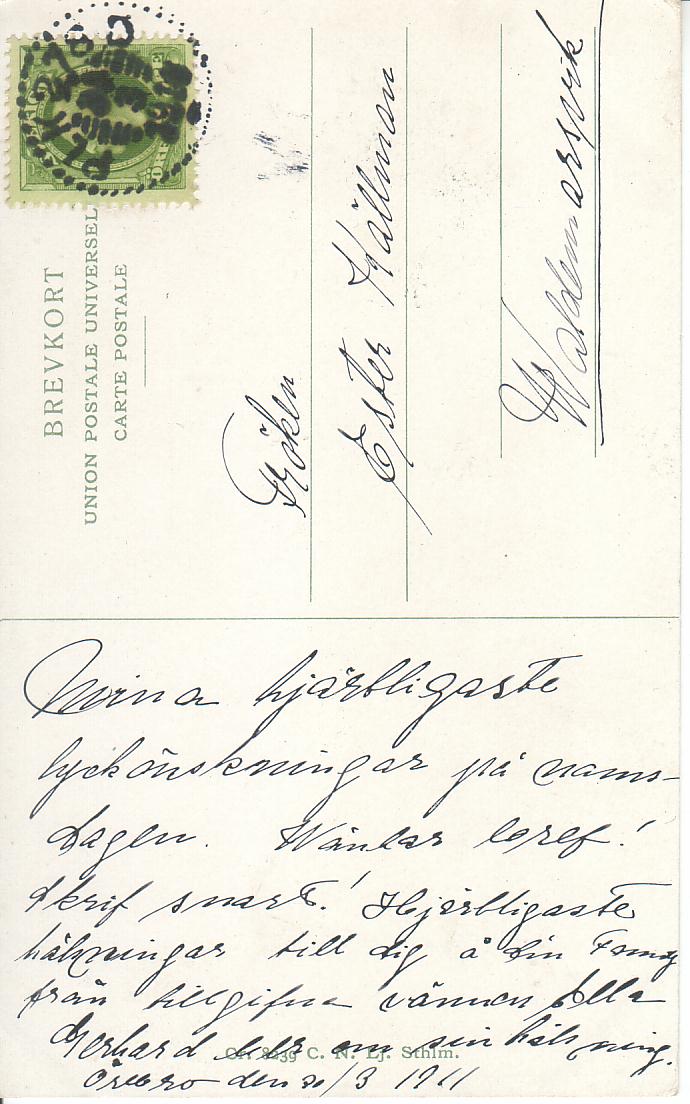 BREVKORT
UNION POSTALE UNIVERSEL
CARTE POSTALE
ÖRE
PLK 276
Fröken
Ester Hällman
Waldemarsvik
Mina hjärtligaste
lyckönskningar på nams-
dagen. Wäntar bref!
Skrif snart! Hjärtligaste
hälsningar till dig å din Familj
från tillgifna vännen Ella
Gerhard ber om sin hälsning.
8239 C. N. Lj. Sthlm.
Örebro den 30/3 1911